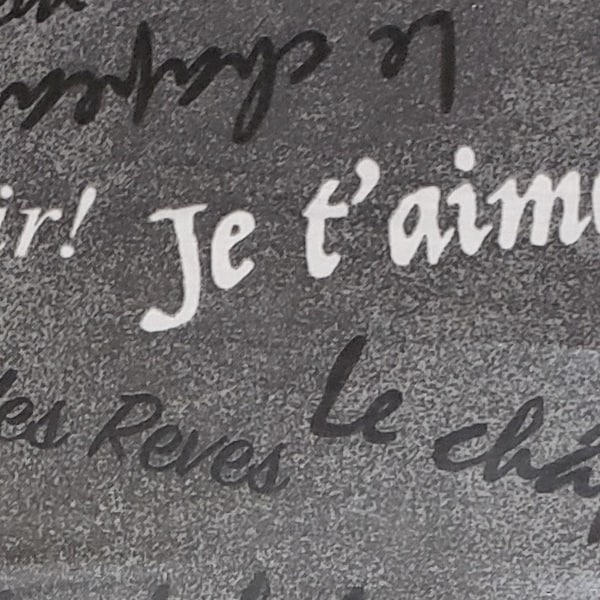 Le chapea
ir! Je t'aime
les Reves Le cha